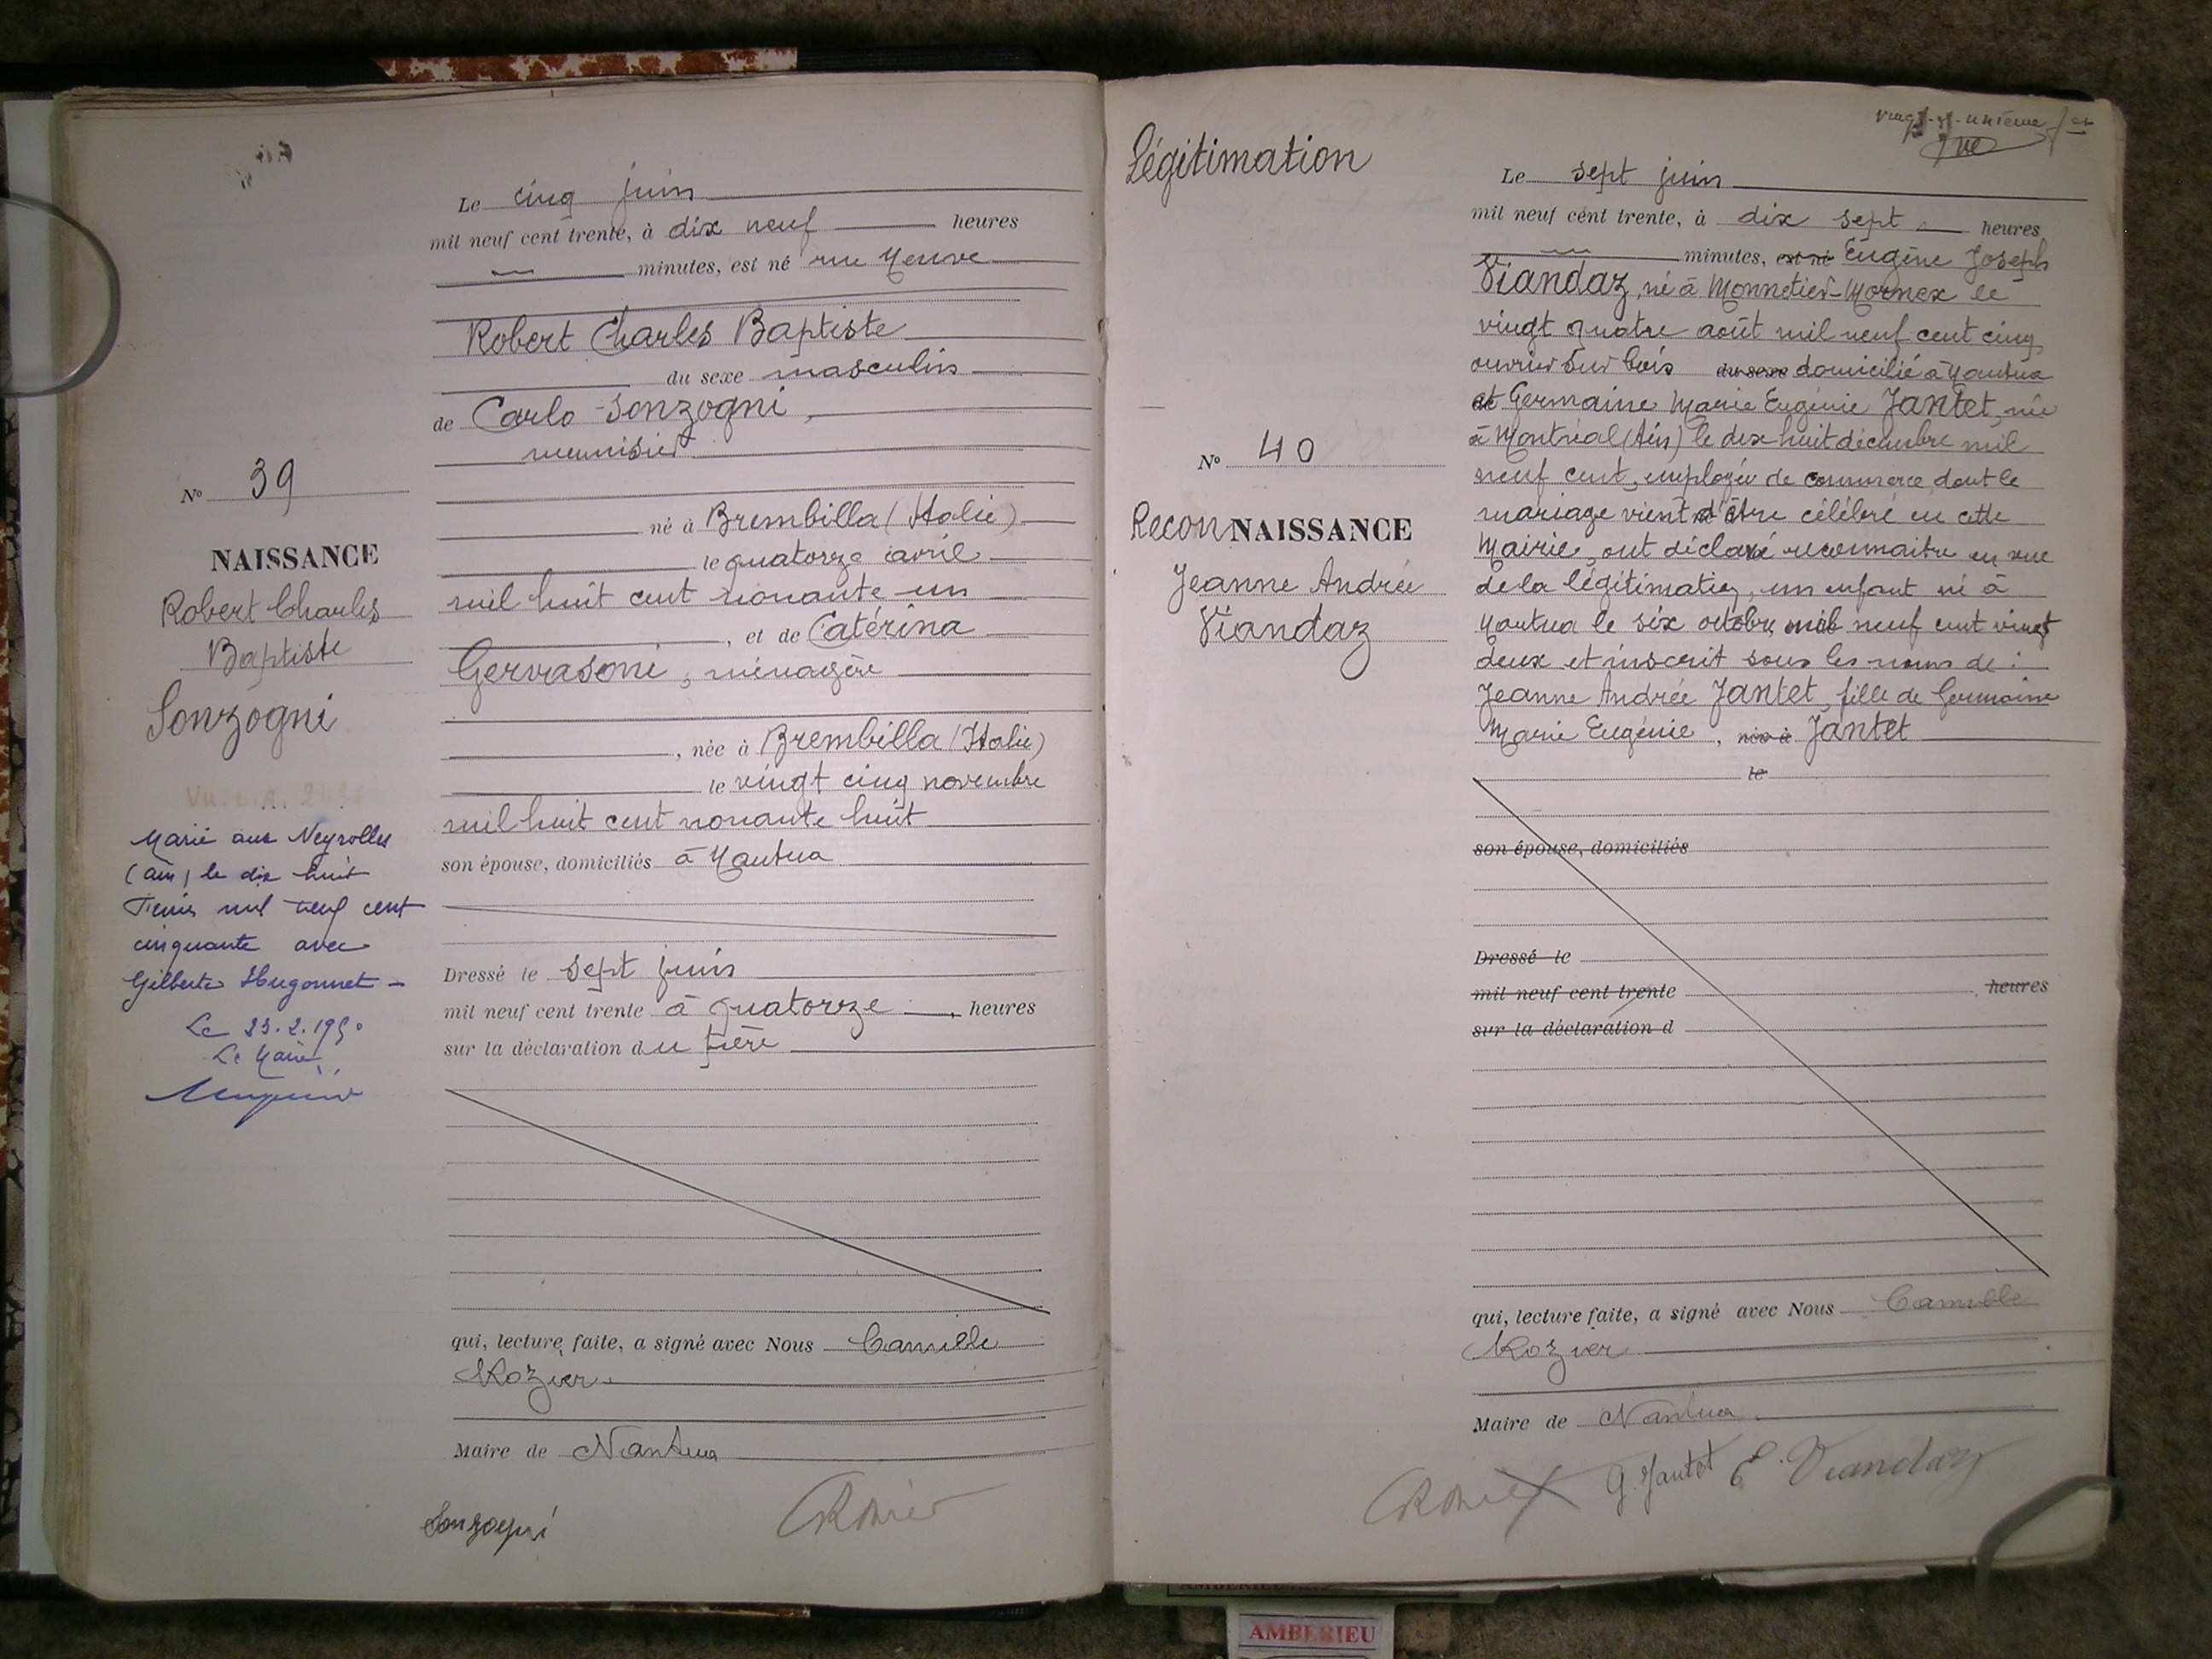 Le cinq juin
mil neuf cent trente, à dix neuf heures
minutes, est né rue Neuve
Robert Charles Baptiste
du sexe masculin
de Carlo Sonzogni,
menuisier
né à Brembilla (Italie)
le quatorze avril
mil huit cent nonante un
, et de Catérina
Gervasoni, ménagère
, née à Brembilla (Italie)
le vingt cinq novembre
mil huit cent nonante huit
son épouse, domiciliés à Nantua
Dressé le sept juin
mil neuf cent trente à quatorze heures
sur la déclaration du père
qui, lecture faite, a signé avec Nous Camille
Rozier
Maire de Nantua
Sonzogni
CRozier
No 39
NAISSANCE
Robert Charles
Baptiste
Sonzogni
Marié aux Neyrolles
(Ain) le dix huit
mil neuf cent
cinquante avec
Gilberte Hugonnet -
Le 23.2.1950
Le Maire,
Légitimation
No 40
ReconNAISSANCE
Jeanne Andrée
Viandaz
vingt-et-unième
Le sept juin
mil neuf cent trente, à dix sept heures
minutes, est né Eugène Joseph
Viandaz, né à Monnetier-Mornex le
vingt quatre août mil neuf cent cinq,
ouvrier sur bois du sexe domicilié à Nantua
et Germaine Marie Eugénie Jantet, née
à Montréal (Ain) le dix huit décembre mil
neuf cent, employée de commerce, dont le
mariage vient d'être célébré en cette
Mairie, ont déclaré reconnaitre en vue
de la légitimation, un enfant né à
Nantua le six octobre mil neuf cent vingt
deux et inscrit sous les noms de :
Jeanne Andrée Jantet, fille de Germaine
Marie Eugénie, née à Jantet
le
son épouse, domiciliés
Dressé le
mil neuf cent trente heures
sur la déclaration d
qui, lecture faite, a signé avec Nous Camille
Rozier
Maire de Nantua
CRozier G. Jantet E. Viandaz
AMBERIEU